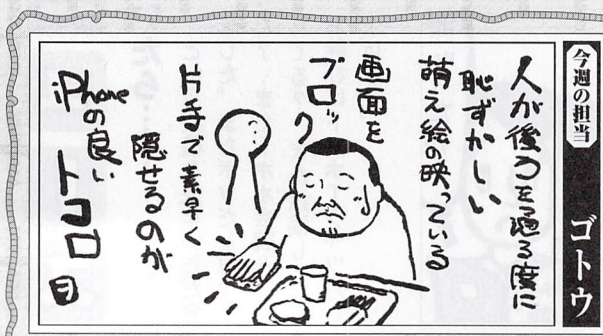 今週の担当
ゴトウ
人が後ろを通る度に
恥ずかしい
萌え絵の映っている
画面を
ブロック
片手で素早く
隠せるのが
iPhoneの良い
トコロ